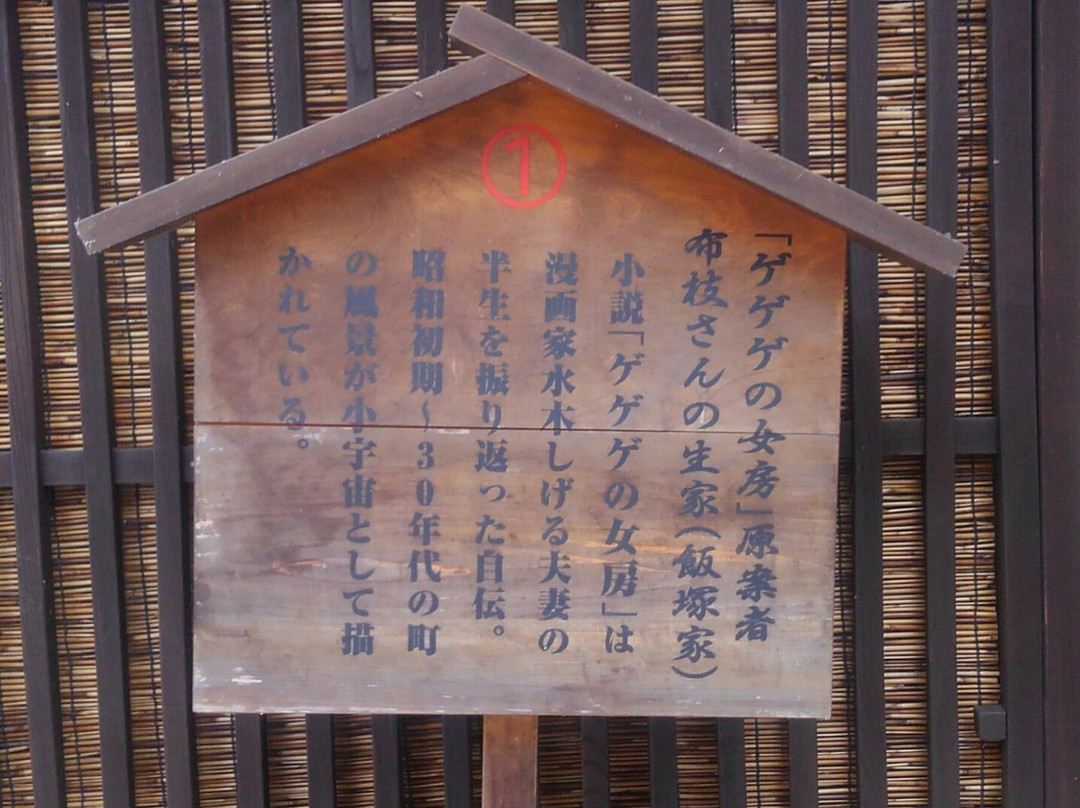 ①
「ゲゲゲの女房」原案者
布枝さんの生家(飯塚家)
小説「ゲゲゲの女房」は
漫画家水木しげる夫妻の
半生を振り返った自伝。
昭和初期~30年代の町
の風景が小宇宙として描
かれている。